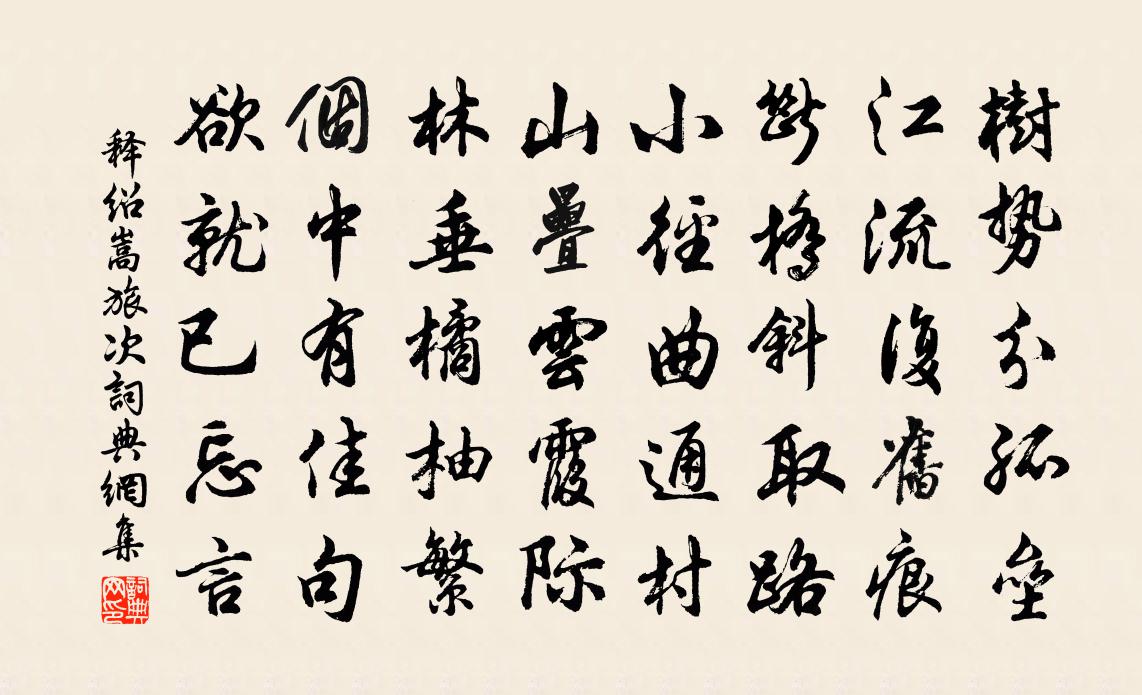 樹势分孤壘
江流復舊痕
斷橋斜取路
小徑曲通村
山疊雲霞际
林垂橘柚繁
個中有佳句
欲就已忘言
释绍嵩旅次詞典網集
詞典
网印